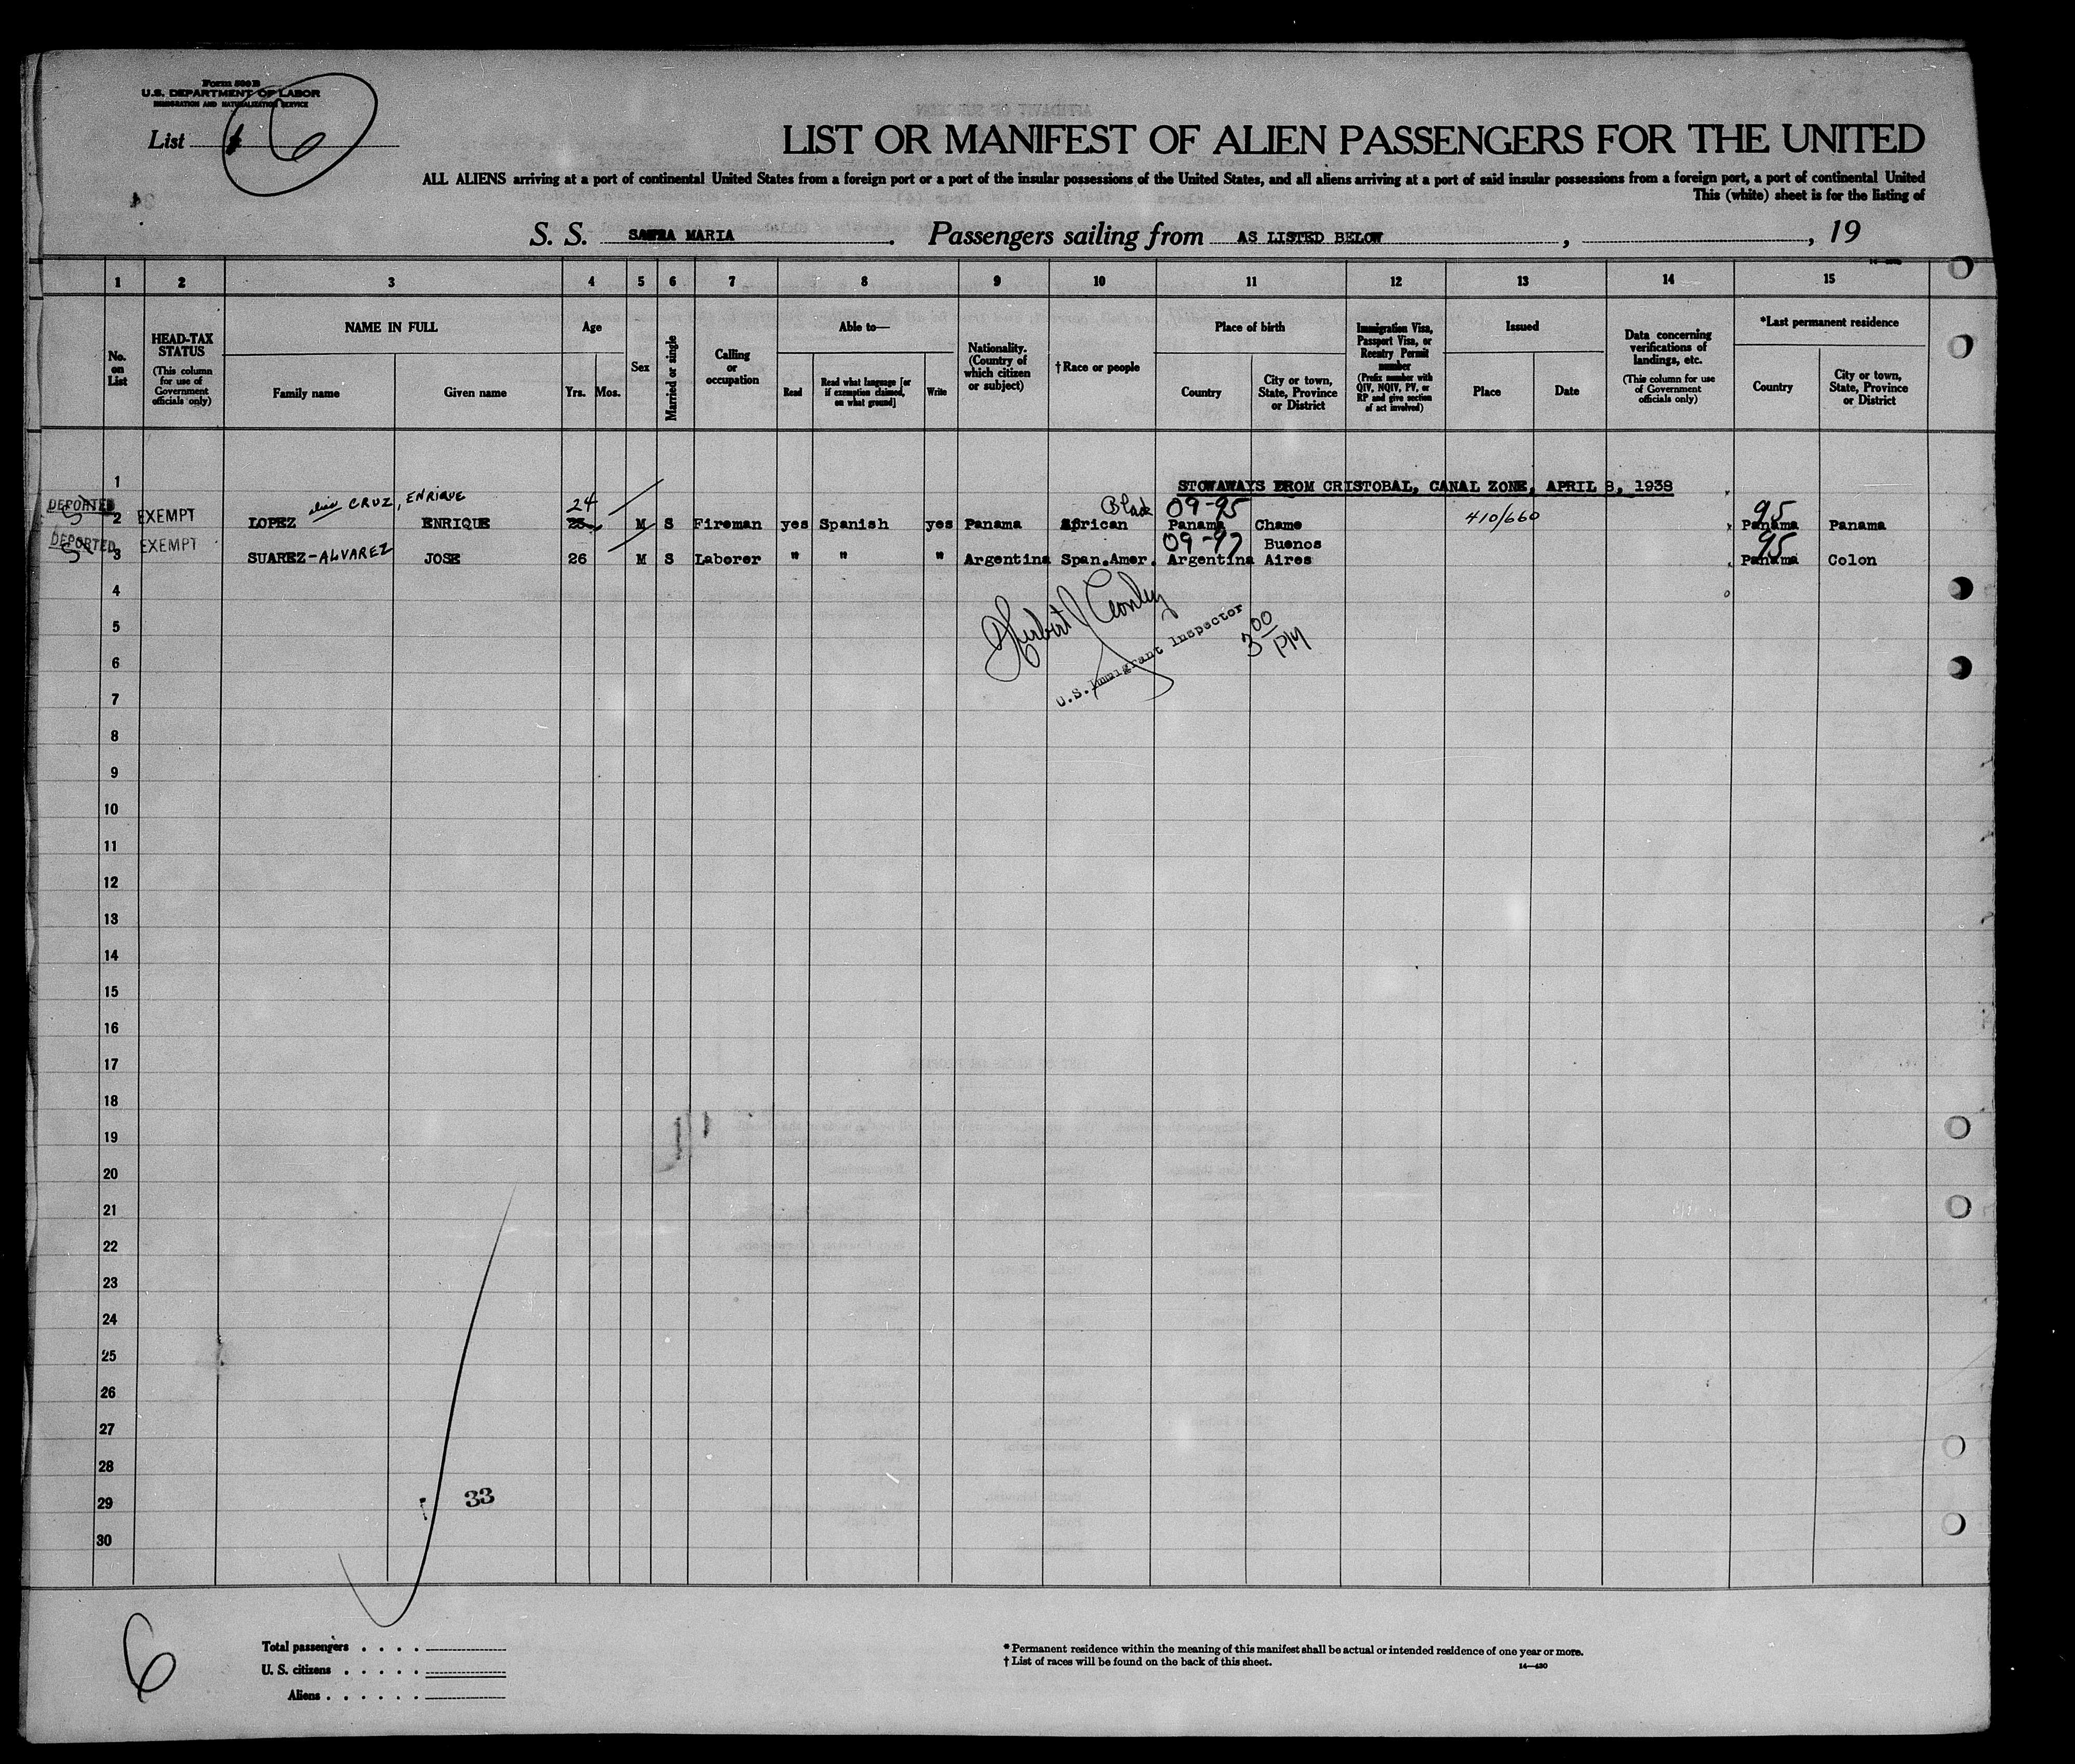 Form 500 B
U.S. DEPARTMENT OF LABOR
IMMIGRATION AND NATURALIZATION SERVICE
List 6
LIST OR MANIFEST OF ALIEN PASSENGERS FOR THE UNITED
ALL ALIENS arriving at a port of continental United States from a foreign port or a port of the insular possessions of the United States, and all aliens arriving at a port of said insular possessions from a foreign port, a port of continental United
This (white) sheet is for the listing of
S. S. SANTA MARIA. Passengers sailing from AS LISTED BELOW, , 19
1 2 3 4 5 6 7 8 9 10 11 12 13 14 15
No. on List
HEAD-TAX STATUS (This column for use of Government officials only)
NAME IN FULL
Family name Given name
Age
Yrs. Mos.
Sex
Married or single
Calling or occupation
Able to—
Read Read what language [or if exemption claimed, on what ground] Write
Nationality. (Country of which citizen or subject)
†Race or people
Place of birth
Country City or town, State, Province or District
Immigration Visa, Passport Visa, or Reentry Permit number (Prefix number with QIV, NQIV, PV, or RP and give section of act involved)
Issued
Place Date
Data concerning verifications of landings, etc. (This column for use of Government officials only)
*Last permanent residence
Country City or town, State, Province or District
1 STOWAWAYS FROM CRISTOBAL, CANAL ZONE, APRIL 8, 1938
alias CRUZ, ENRIQUE 24 Black 09-95 95
DEPORTED 2 EXEMPT LOPEZ ENRIQUE 25 M S Fireman yes Spanish yes Panama African Panama Chame 410/660 Panama Panama
09-97 Buenos 95
DEPORTED 3 EXEMPT SUAREZ-ALVAREZ JOSE 26 M S Laborer " " " Argentina Span.Amer. Argentina Aires Panama Colon
4
5
6
U.S. Immigrant Inspector
3 00 PM
7
8
9
10
11
12
13
14
15
16
17
18
19
20
21
22
23
24
25
26
27
28
29 33
30
6
Total passengers . . . .
U. S. citizens . . . . .
Aliens . . . . . .
* Permanent residence within the meaning of this manifest shall be actual or intended residence of one year or more.
† List of races will be found on the back of this sheet.
14—430